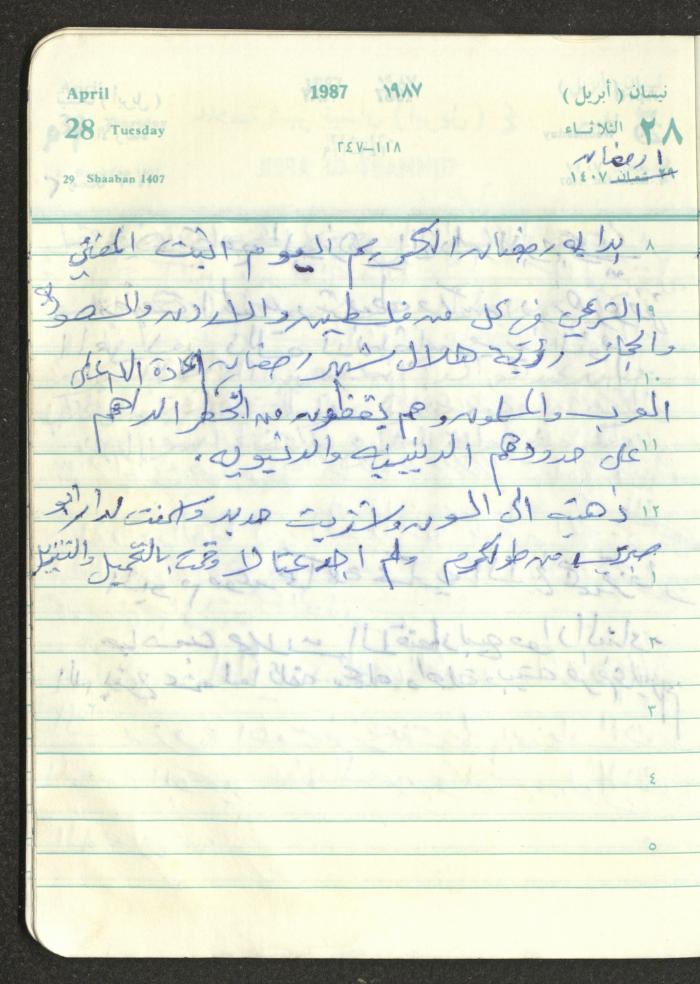 April 1987 ١٩٨٧ نيسان (أبريل)
28 Tuesday ١١٨-٢٤٧ الثلاثاء ٢٨
١ رمضان
29 Shaaban 1407 ٢٩ شعبان ١٤٠٧
٨ بداية رمضان الكريم اليوم اثبت المفتي
٩ والشرعي في كل من فلسطين والاردن والسعودية
والحجاز رؤية هلال شهر رمضان اعاده الله على
١٠
العرب والمسلمون وهم يقظون من الخطر الداهم
١١ على حدودهم الدينية والدنيوية.
١٢ ذهبت الى السوق واشتريت حديد واسمنت لدار ابو
صبري من طولكرم ولم اجد عتالا وقمت بالتحميل والتنزيل
١
٢
٣
٤
٥